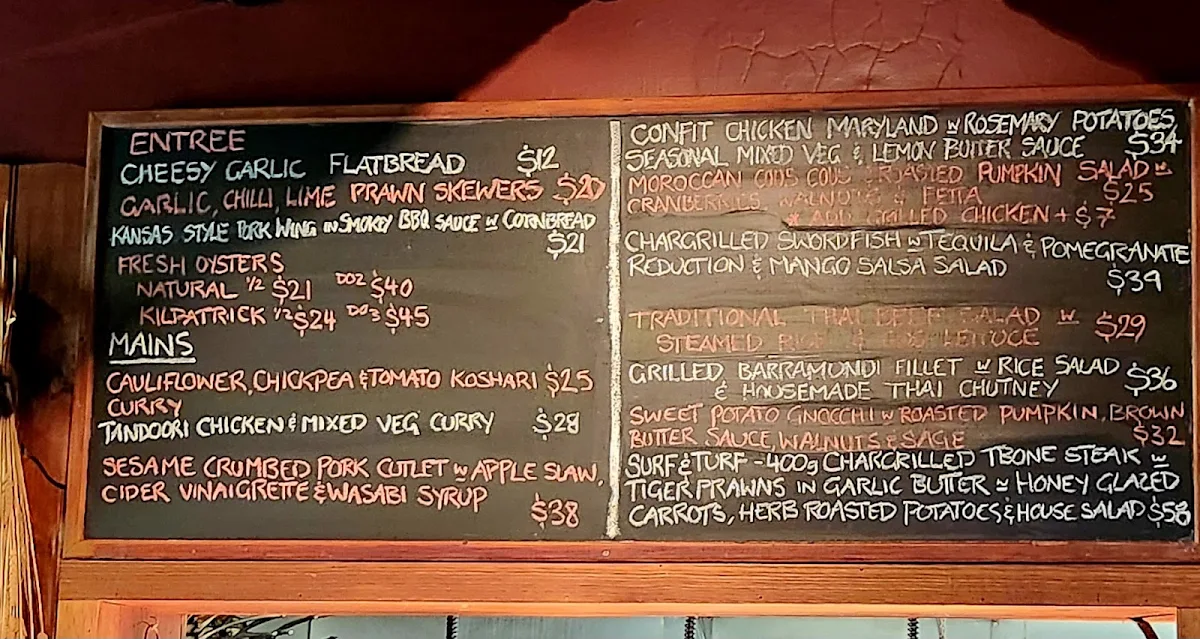 ENTREE
CHEESY GARLIC FLATBREAD $12
GARLIC, CHILLI, LIME PRAWN SKEWERS $20
KANSAS STYLE PORK WING IN SMOKEY BBQ SAUCE W CORNBREAD
$21
FRESH OYSTERS
NATURAL 1/2 $21 DOZ $40
KILPATRICK 1/2 $24 DOZ $45
MAINS
CAULIFLOWER, CHICKPEA & TOMATO KOSHARI $25
CURRY
TANDOORI CHICKEN & MIXED VEG CURRY $28
SESAME CRUMBED PORK CUTLET W APPLE SLAW,
CIDER VINAIGRETTE & WASABI SYRUP
$38
CONFIT CHICKEN MARYLAND W ROSEMARY POTATOES,
SEASONAL MIXED VEG & LEMON BUTTER SAUCE $34
MOROCCAN COUS COUS & ROASTED PUMPKIN SALAD W
CRANBERRIES, WALNUTS & FETTA $25
* ADD GRILLED CHICKEN + $7
CHARGRILLED SWORDFISH W TEQUILA & POMEGRANATE
REDUCTION & MANGO SALSA SALAD
$39
TRADITIONAL THAI BEEF SALAD W $29
STEAMED RICE & LETTUCE
GRILLED BARRAMUNDI FILLET W RICE SALAD
& HOUSEMADE THAI CHUTNEY $36
SWEET POTATO GNOCCHI W ROASTED PUMPKIN, BROWN
BUTTER SAUCE, WALNUTS & SAGE $32
SURF & TURF - 400g CHARGRILLED TBONE STEAK W
TIGER PRAWNS IN GARLIC BUTTER W HONEY GLAZED
CARROTS, HERB ROASTED POTATOES & HOUSE SALAD $58